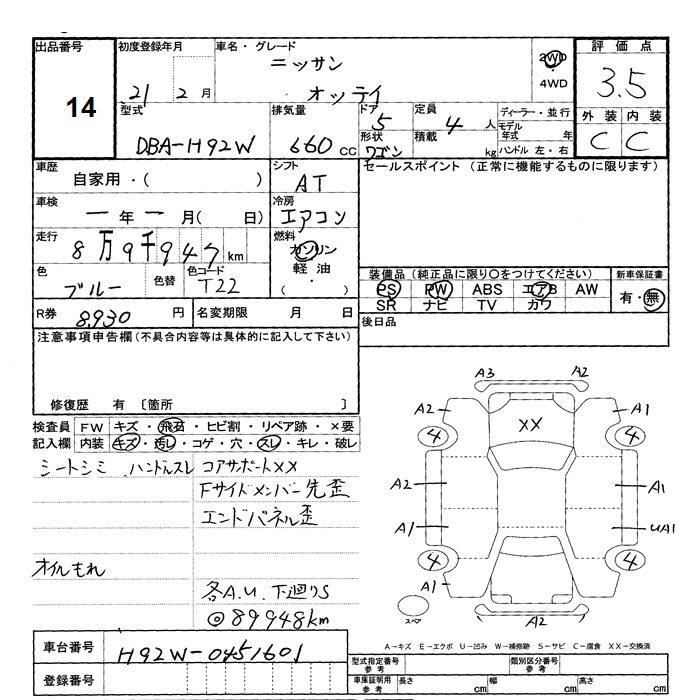 出品番号 初度登録年月 車名・グレード 評価点
14 21 2月 ニッサン 2WD ・ 4WD 3.5
オッティ
型式 排気量 ドア 定員 ディーラー・並行 外装 内装
DBA-H92W 660cc 5 4人 モデル年式 年 C C
形状 積載
ワゴン kg ハンドル 左・右
車歴 シフト セールスポイント (正常に機能するものに限ります)
自家用・( ) AT
車検 冷房
ー年ー月( 日) エアコン
走行 燃料
8万9千947km ガソリン
色 色替 色コード 軽油
ブルー T22 ・( )
装備品(純正品に限り○をつけてください) 新車保証書
PS PW ABS エアB AW 有・無
SR ナビ TV カワ
R券 8930円 名変期限 月 日 後日品
注意事項申告欄(不具合内容等は具体的に記入して下さい)
修復歴 有 〔箇所 〕
検査員 FW キズ・飛石・ヒビ割・リペア跡・×要
記入欄 内装 キズ・汚レ・コゲ・穴・スレ・キレ・破レ
シートシミ ハンドルスレ コアサポートXX
Fサイドメンバー先歪
エンドパネル歪
オイルもれ
各A.U.下廻りS
◎89948km
A3 A2
A2 XX A1
4 4
A2 A1
A1 UA1
4 4
A1
スペア A2
A-キズ E-エクボ U-凹み W-補修跡 S-サビ C-腐食 XX-交換済
車台番号 H92W-0451601
型式指定番号 参考 類別区分番号 参考
登録番号
車庫証明用 参考 長さ cm 幅 cm 高さ cm